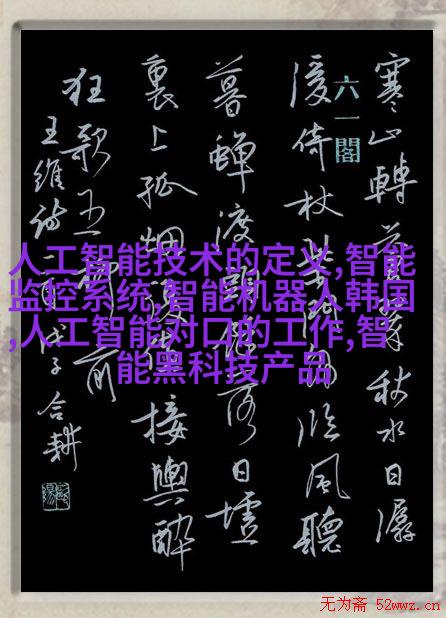 寒山轉蒼翠秋水日潺
湲倚杖柴門外临風聽
暮蟬渡頭餘落日墟
裏上孤烟復值接輿醉
狂歌五柳前
王維詩一首戊子合耕
六一閣
人工智能技术的定义,智能
监控系统,智能机器人韩国
,人工智能对口的工作,智
能黑科技产品
无为斋 52wwz.cn